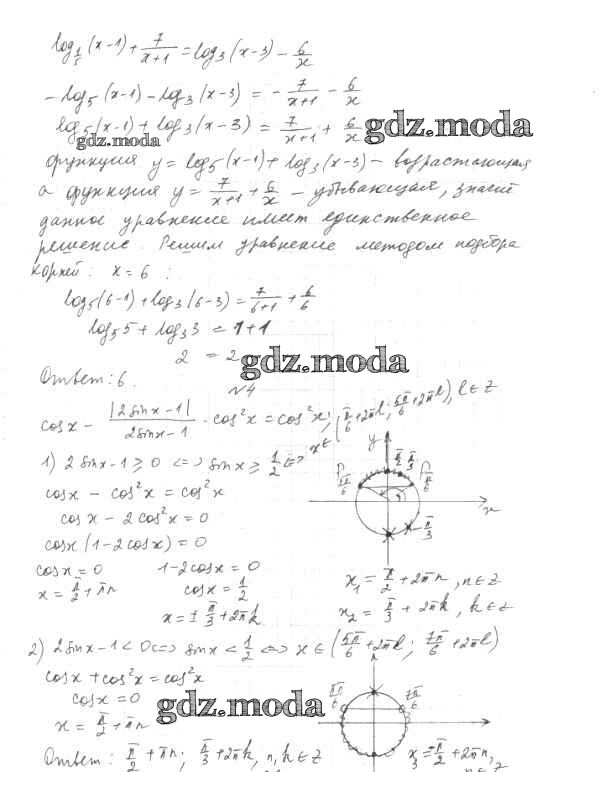 log_{1/5}(x-1) + 7/(x+1) = log_3(x-3) - 6/x
-log_5(x-1) - log_3(x-3) = -7/(x+1) - 6/x
log_5(x-1) + log_3(x-3) = 7/(x+1) + 6/x
gdz.moda
gdz.moda
функция y = log_5(x-1) + log_3(x-3) - возрастающая
а функция y = 7/(x+1) + 6/x - убывающая, значит
данное уравнение имеет единственное
решение. Решим уравнение методом подбора
корней: x = 6 :
log_5(6-1) + log_3(6-3) = 7/(6+1) + 6/6
log_5 5 + log_3 3 = 1+1
2 = 2
gdz.moda
Ответ: 6.
№4
cosx - |2sinx-1|/(2sinx-1) · cos²x = cos²x;
1) 2sinx-1 ≥ 0 <=> sinx ≥ 1/2 <=> x ∈ [π/6 + 2πl; 5π/6 + 2πl), l ∈ Z
cosx - cos²x = cos²x
cosx - 2cos²x = 0
cosx(1-2cosx) = 0
cosx = 0 1-2cosx = 0
x = π/2 + πn cosx = 1/2
x = ± π/3 + 2πk
y
x
π/2 π/3
P_{5π/6} P_{π/6}
-π/3
x_1 = π/2 + 2πn, n ∈ Z
x_2 = π/3 + 2πk, k ∈ Z
2) 2sinx-1 < 0 <=> sinx < 1/2 <=> x ∈ (5π/6 + 2πl; 7π/6 + 2πl)
cosx + cos²x = cos²x
cosx = 0
x = π/2 + πn
gdz.moda
7π/6
x_3 = -π/2 + 2πn,
Ответ: π/2 + πn; π/3 + 2πk, n, k ∈ Z